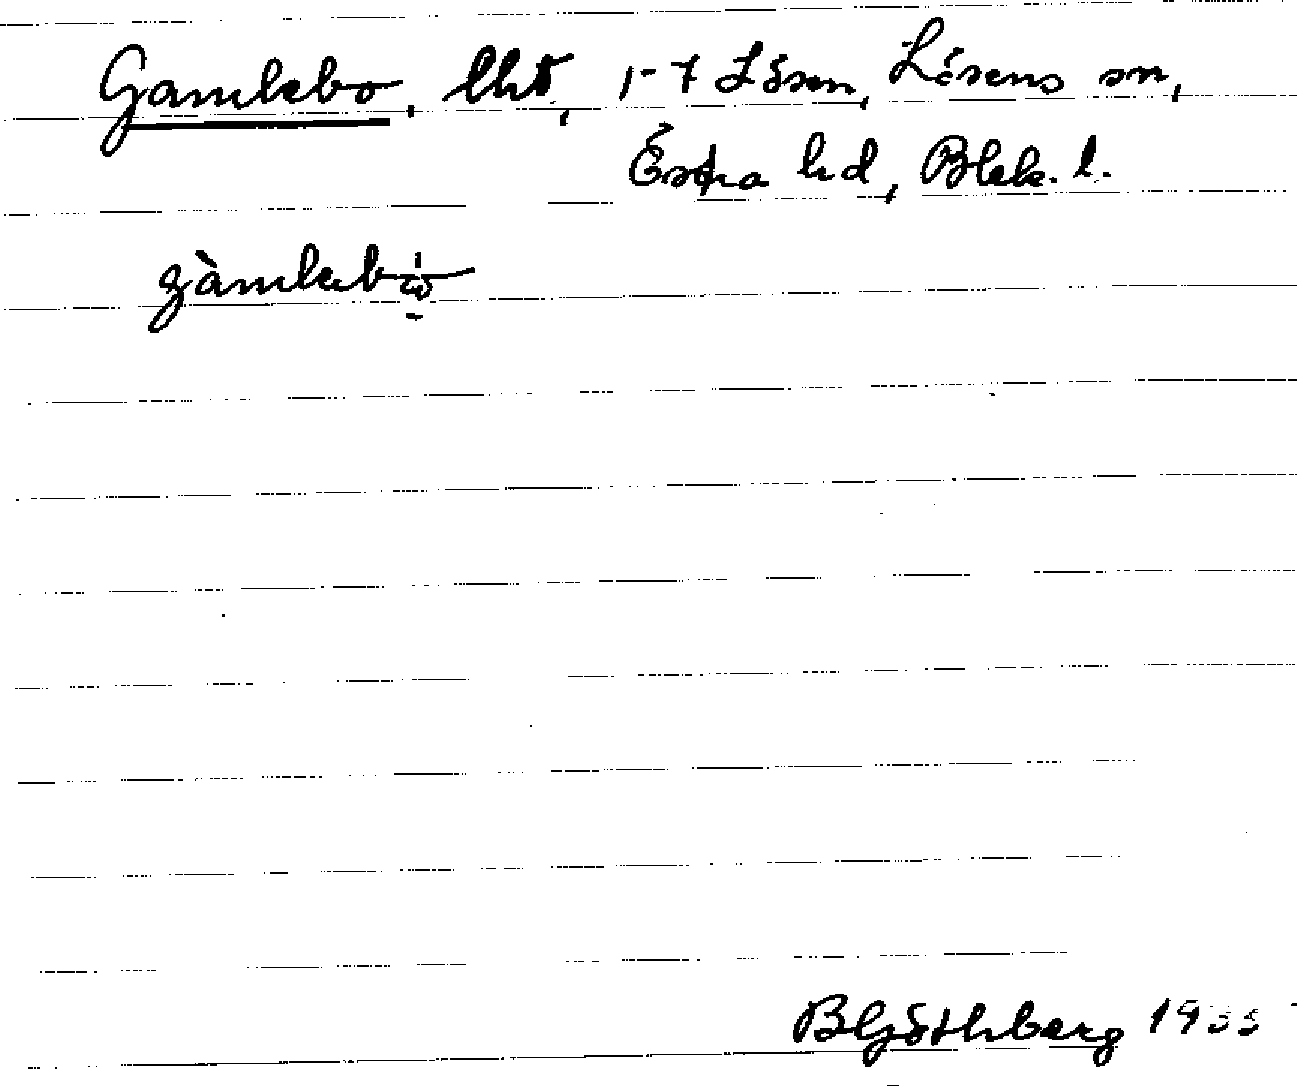 Gamlebo, lht, 1-7 Lösen, Lösens sn,
Östra hd, Blek. l.
gàmleb
BGöthberg 1933